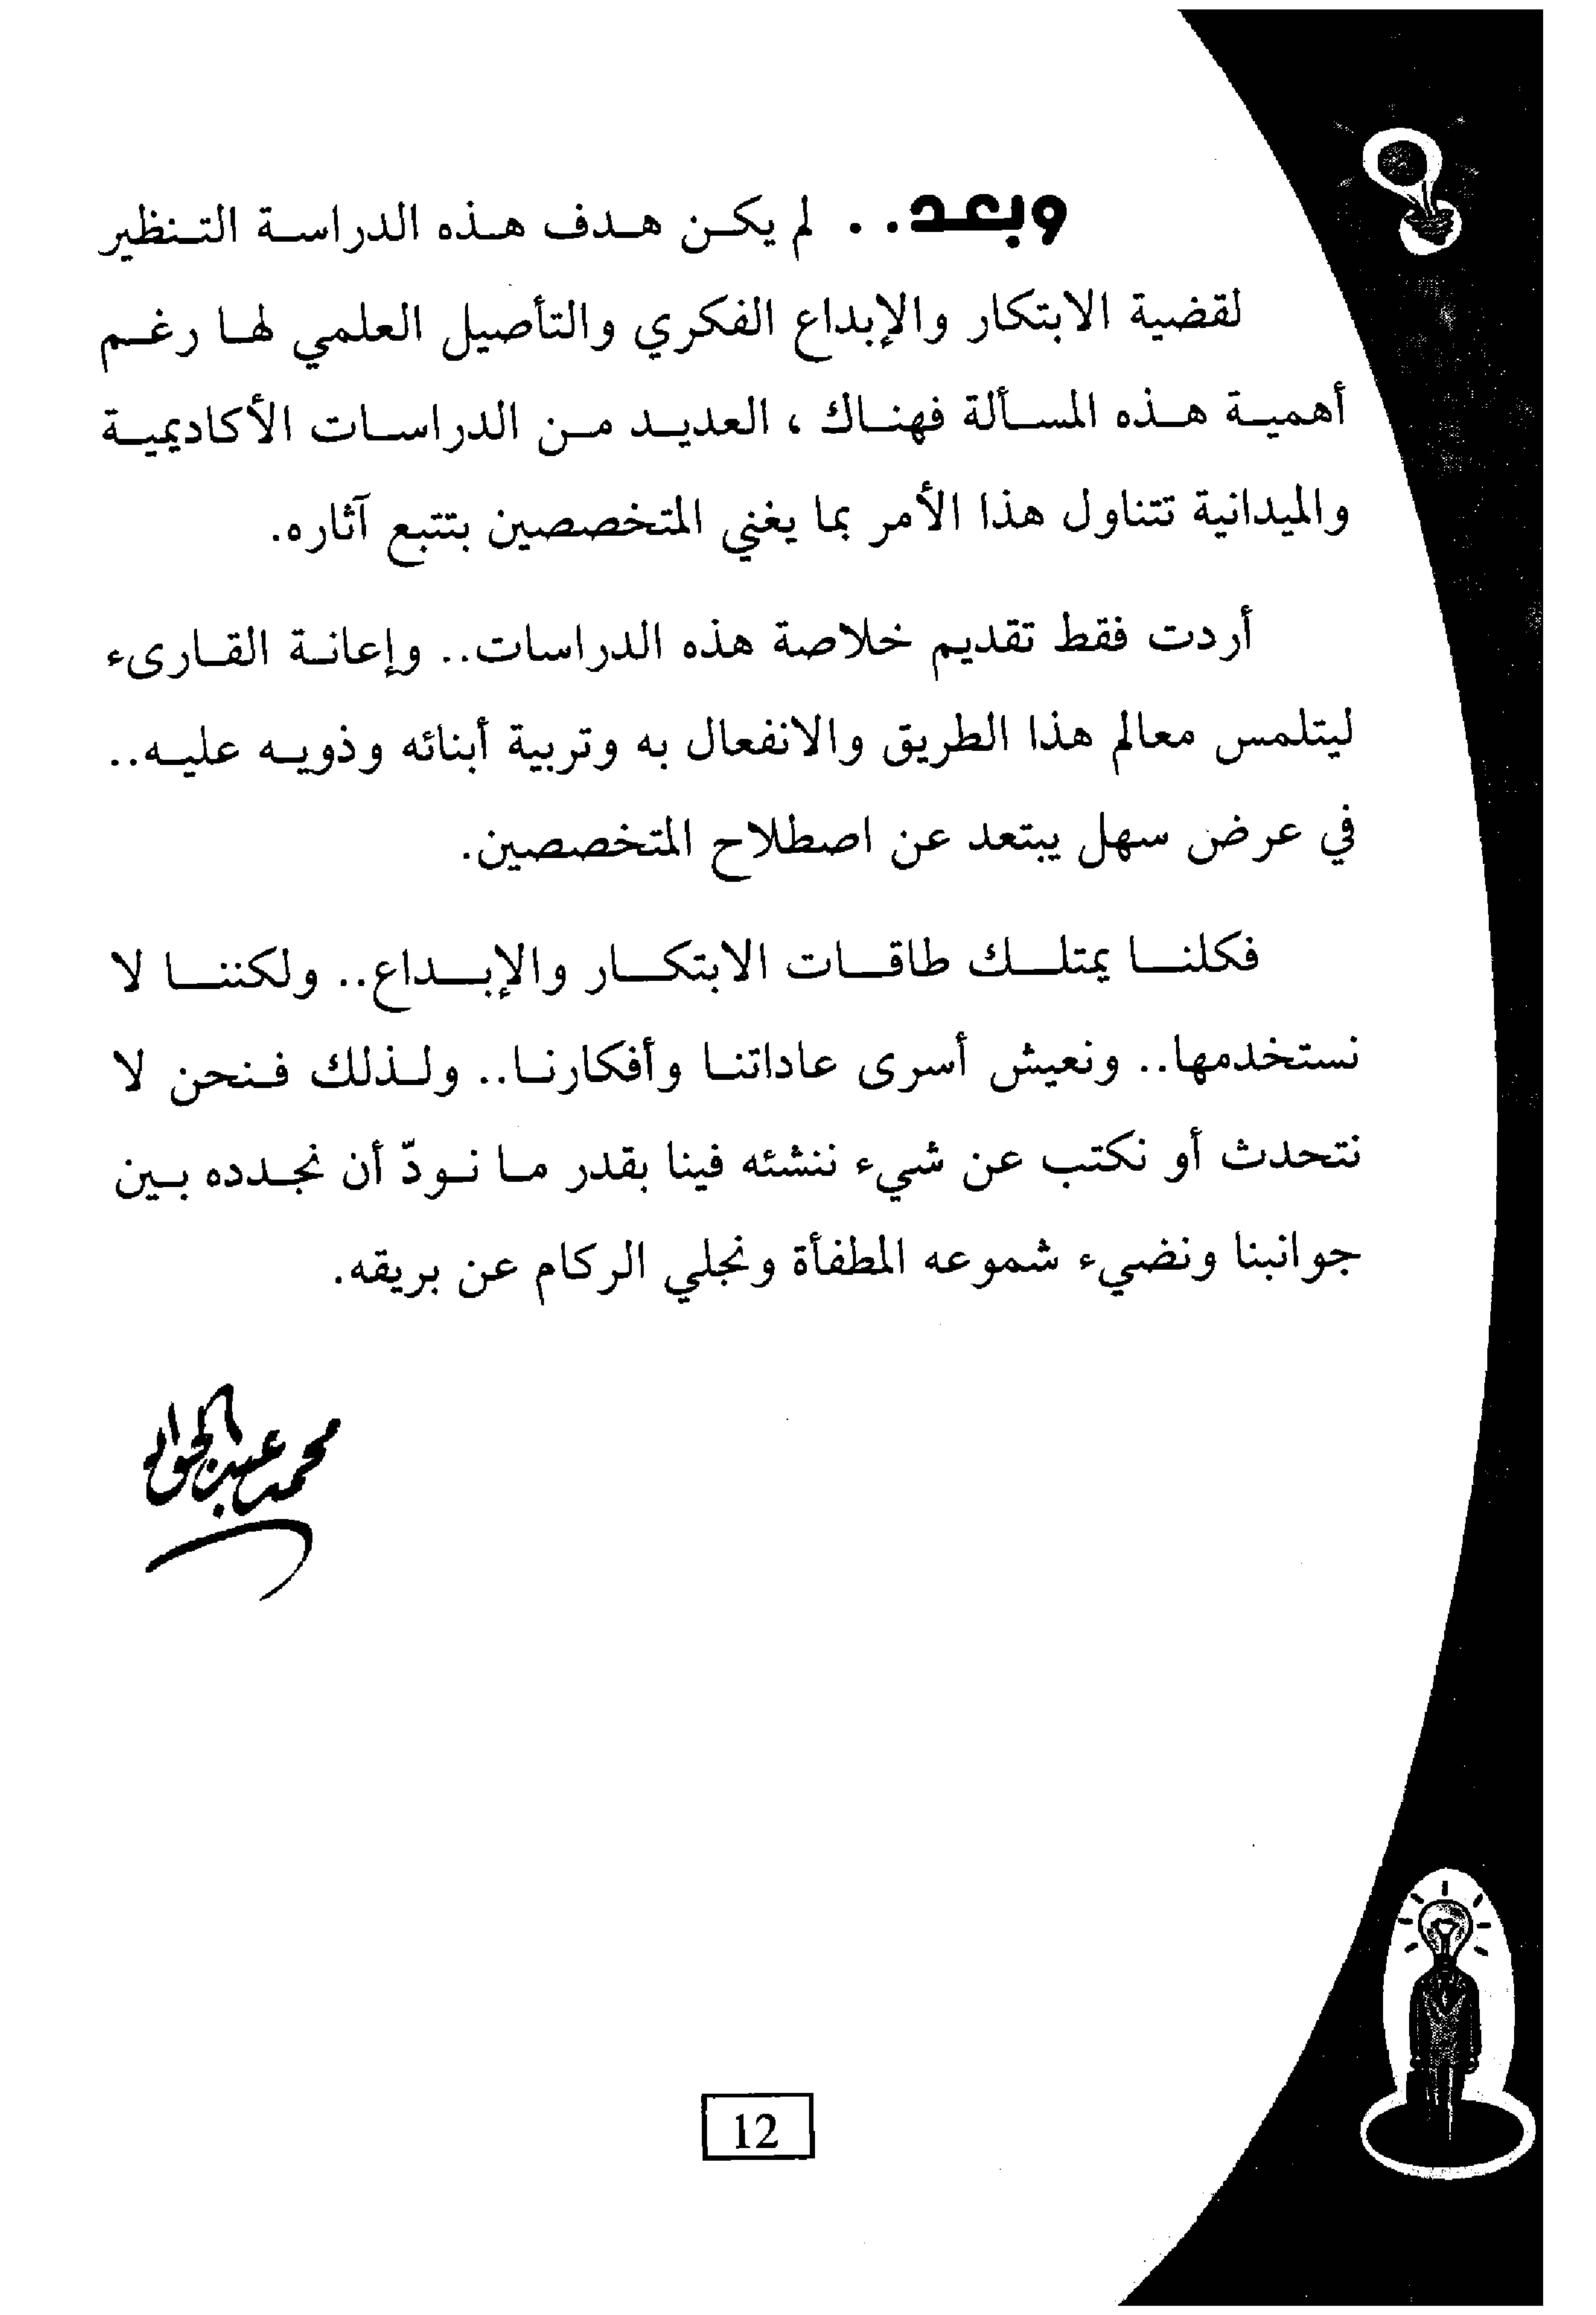 وبعد.. لم يكن هدف هذه الدراسة التنظير
لقضية الابتكار والإبداع الفكري والتأصيل العلمي لها رغم
أهمية هذه المسألة فهناك ، العديد من الدراسات الأكاديمية
والميدانية تتناول هذا الأمر بما يغني المتخصصين بتتبع آثاره.
أردت فقط تقديم خلاصة هذه الدراسات.. وإعانة القارىء
ليتلمس معالم هذا الطريق والانفعال به وتربية أبنائه وذويه عليه..
في عرض سهل يبتعد عن اصطلاح المتخصصين.
فكلنا يمتلك طاقات الابتكار والإبداع.. ولكننا لا
نستخدمها.. ونعيش أسرى عاداتنا وأفكارنا.. ولذلك فنحن لا
نتحدث أو نكتب عن شيء ننشئه فينا بقدر ما نودّ أن نجدده بين
جوانبنا ونضيء شموعه المطفأة ونجلي الركام عن بريقه.
محمد عبد الجواد
12